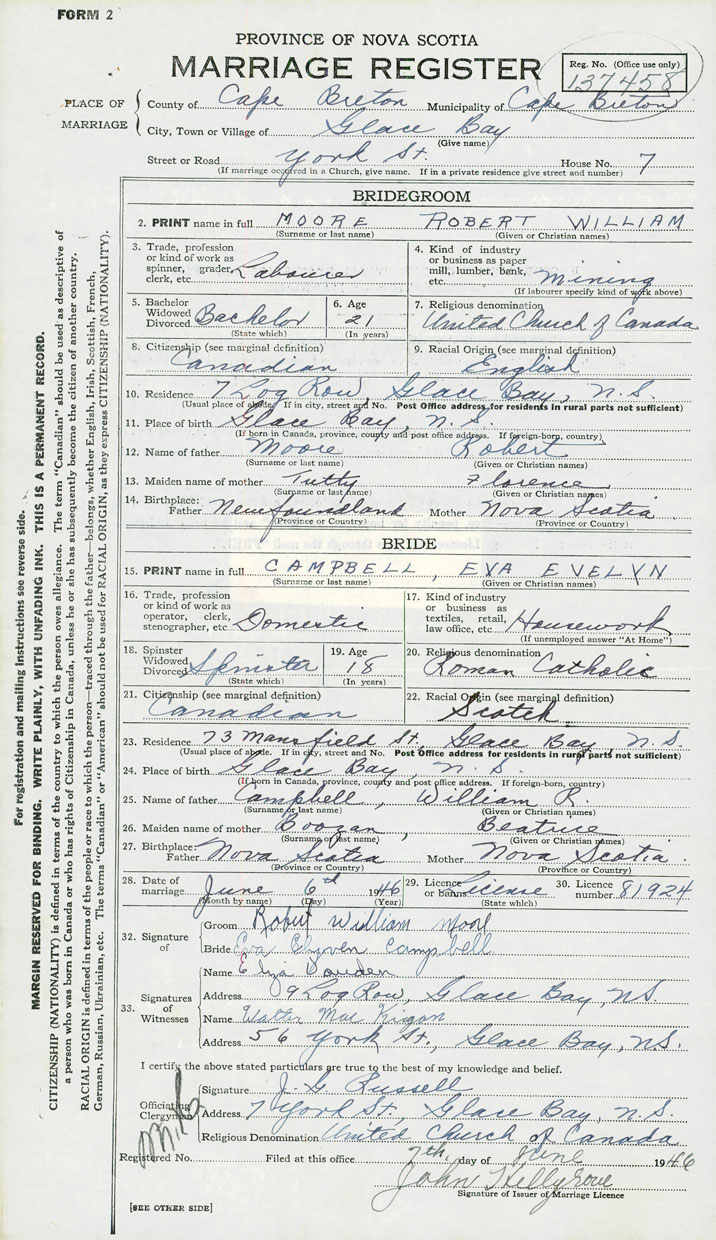 FORM 2
PROVINCE OF NOVA SCOTIA
MARRIAGE REGISTER
Reg. No. (Office use only)
137458
PLACE OF MARRIAGE
County of Cape Breton Municipality of Cape Breton
City, Town or Village of Glace Bay
(Give name)
Street or Road York St. House No. 7
(If marriage occurred in a Church, give name. If in a private residence give street and number)
BRIDEGROOM
2. PRINT name in full MOORE ROBERT WILLIAM
(Surname or last name) (Given or Christian names)
3. Trade, profession or kind of work as spinner, grader, clerk, etc. Labourer
4. Kind of industry or business as paper mill, lumber, bank, etc. Mining
(If labourer specify kind of work above)
5. Bachelor Widowed Divorced Bachelor
(State which)
6. Age 21
(In years)
7. Religious denomination
United Church of Canada
8. Citizenship (see marginal definition)
Canadian
9. Racial Origin (see marginal definition)
English
10. Residence 7 Log Row, Glace Bay, N.S.
(Usual place of abode. If in city, street and No. Post Office address for residents in rural parts not sufficient)
11. Place of birth Glace Bay, N.S.
(If born in Canada, province, county and post office address. If foreign-born, country)
12. Name of father Moore Robert
(Surname or last name) (Given or Christian names)
13. Maiden name of mother Tutty Florence
(Surname or last name) (Given or Christian names)
14. Birthplace: Father Newfoundland Mother Nova Scotia
(Province or Country) (Province or Country)
BRIDE
15. PRINT name in full CAMPBELL, EVA EVELYN
(Surname or last name) (Given or Christian names)
16. Trade, profession or kind of work as operator, clerk, stenographer, etc. Domestic
17. Kind of industry or business as textiles, retail, law office, etc. Housework
(If unemployed answer "At Home")
18. Spinster Widowed Divorced Spinster
(State which)
19. Age 18
(In years)
20. Religious denomination
Roman Catholic
21. Citizenship (see marginal definition)
Canadian
22. Racial Origin (see marginal definition)
Scotch
23. Residence 73 Mansfield St., Glace Bay, N.S.
(Usual place of abode. If in city, street and No. Post Office address for residents in rural parts not sufficient)
24. Place of birth Glace Bay, N.S.
(If born in Canada, province, county and post office address. If foreign-born, country)
25. Name of father Campbell, William R.
(Surname or last name) (Given or Christian names)
26. Maiden name of mother Boozan, Beatrice
(Surname or last name) (Given or Christian names)
27. Birthplace: Father Nova Scotia Mother Nova Scotia
(Province or Country) (Province or Country)
28. Date of marriage June 6th 1946
(Month by name) (Day) (Year)
29. Licence or banns License
(State which)
30. Licence number 81924
32. Signature of
Groom Robert William Moore
Bride Eva Campbell
33. Signatures of Witnesses
Name Eliza
Address 9 Log Row, Glace Bay, NS
Name Walter Mac
Address 56 York St., Glace Bay, N.S.
I certify the above stated particulars are true to the best of my knowledge and belief.
Officiating Clergyman
Signature J. G. Russell
Address 7 York St., Glace Bay, N.S.
Religious Denomination United Church of Canada
Registered No. Filed at this office 7th day of June 1946
John
Signature of Issuer of Marriage Licence
[SEE OTHER SIDE]
For registration and mailing instructions see reverse side.
MARGIN RESERVED FOR BINDING. WRITE PLAINLY, WITH UNFADING INK. THIS IS A PERMANENT RECORD.
CITIZENSHIP (NATIONALITY) is defined in terms of the country to which the person owes allegiance. The term "Canadian" should be used as descriptive of
a person who was born in Canada or who has rights of Citizenship in Canada, unless he or she has subsequently become the citizen of another country.
RACIAL ORIGIN is defined in terms of the people or race to which the person—traced through the father—belongs, whether English, Irish, Scottish, French,
German, Russian, Ukrainian, etc. The terms "Canadian" or "American" should not be used for RACIAL ORIGIN, as they express CITIZENSHIP (NATIONALITY).